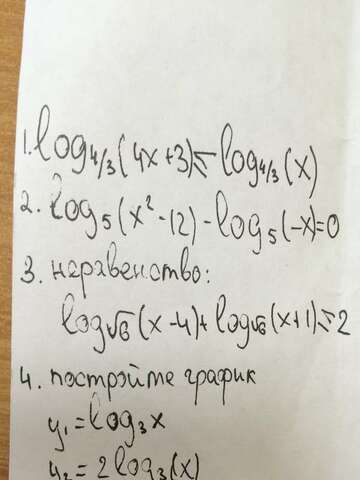 1. log₄/₃(4x+3)≤log₄/₃(x)
2. log₅(x²-12)-log₅(-x)=0
3. неравенство:
log√6(x-4)+log√6(x+1)≤2
4. постройте график
y₁=log₃x
y₂=2log₃(x)